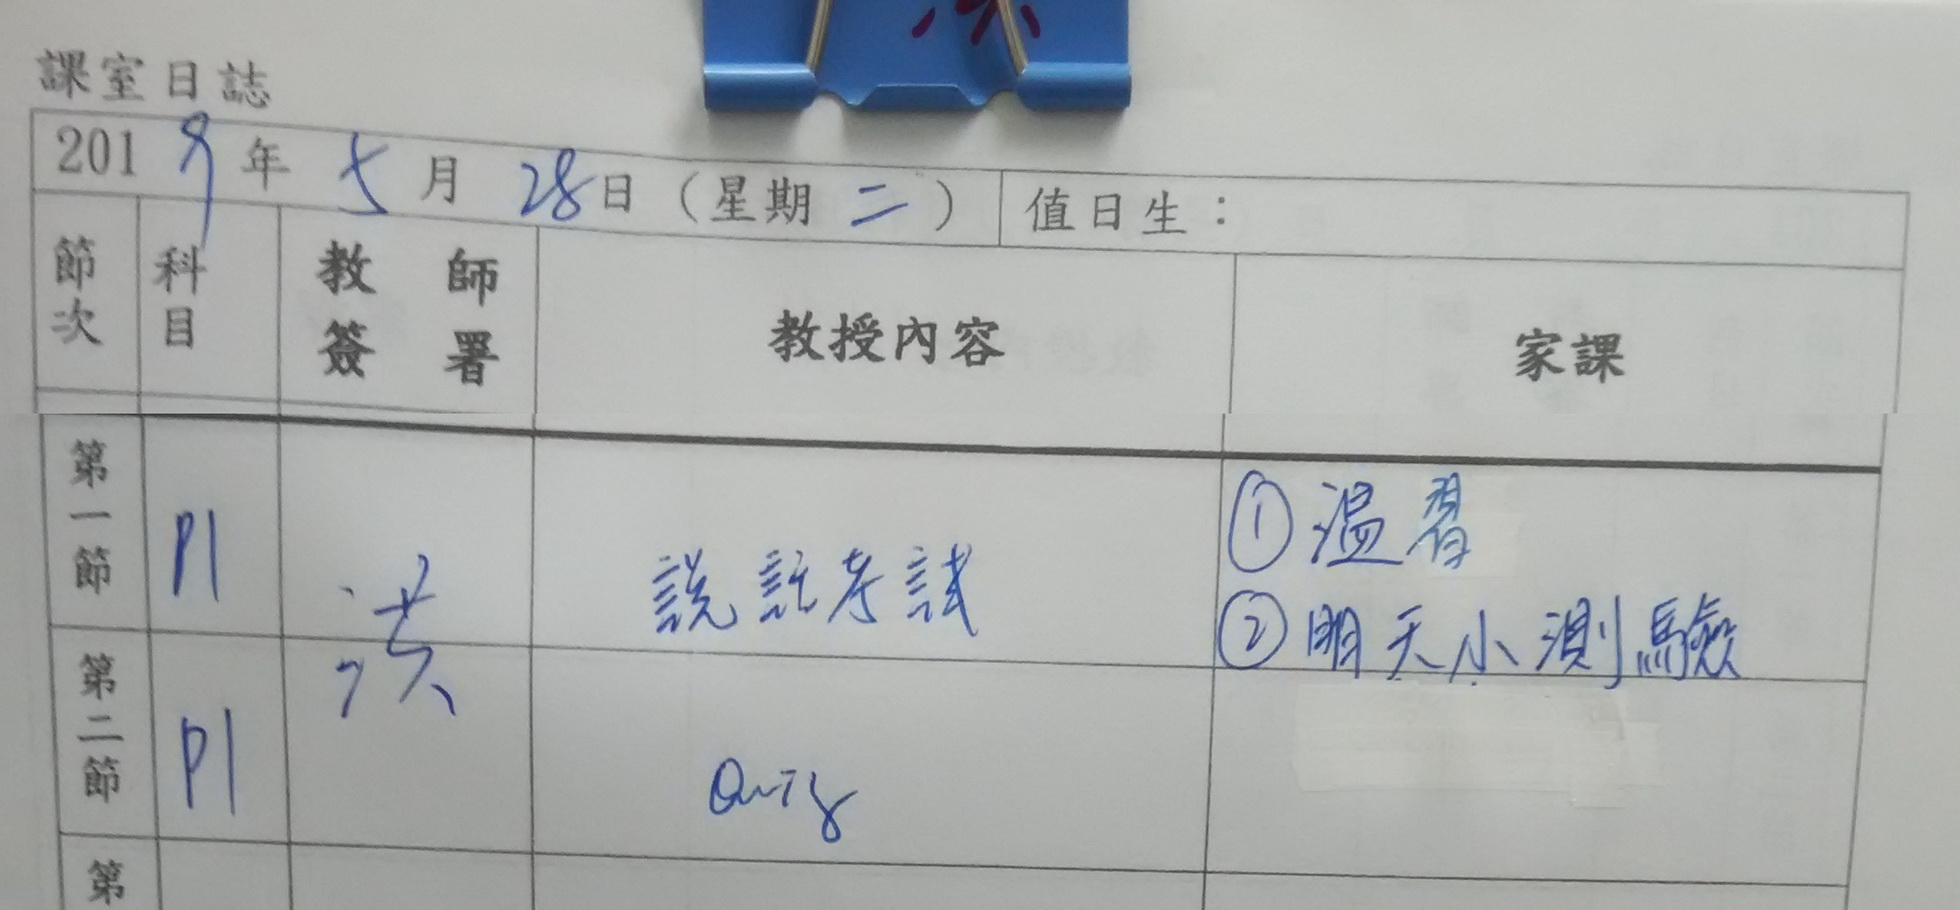 課室日誌
2019年 5月 28日（星期 二）
值日生：
節次
科目
教師簽署
教授內容
家課
第一節
P1
洪
說話考試
①溫習
②明天小測驗
第二節
P1
Quiz
第